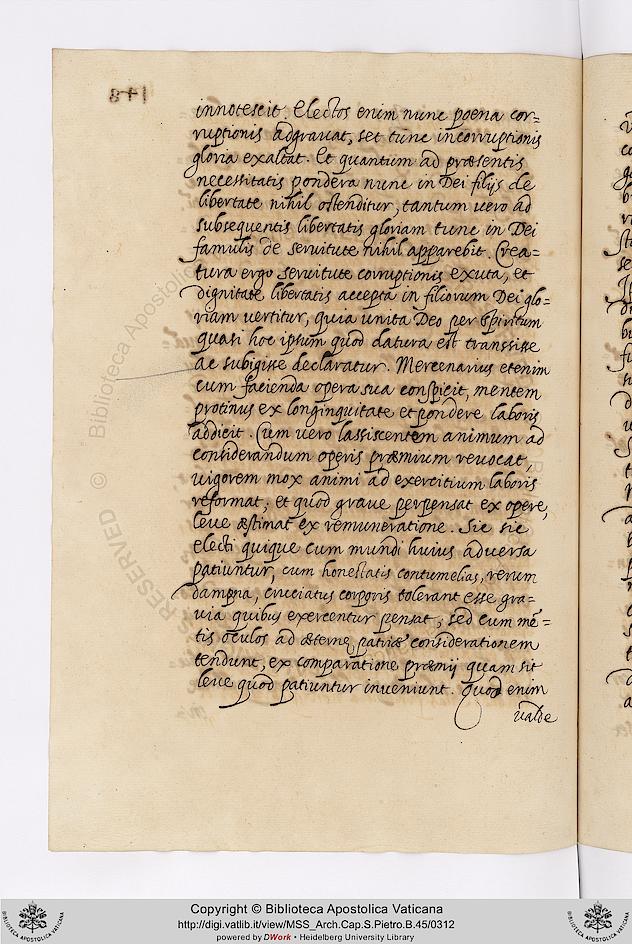 innotescit. Electos enim nunc poena cor=
ruptionis adgrauat, set tunc incorruptionis
gloria exaltat. Et quantum ad præsentis
necessitatis pondera nunc in Dei filijs de
libertate nihil ostenditur, tantum uero ad
subsequentis libertatis gloriam tunc in Dei
famulis de seruitute nihil apparebit. Crea=
tura ergo seruitute corruptionis exuta, et
dignitate libertatis accepta in filiorum Dei glo=
riam uertitur, quia unita Deo per Spiritum
quasi hoc ipsum quod datura est transsisse
ac subigisse declaratur. Mercenarius etenim
cum facienda opera sua conspicit, mentem
protinus ex longinquitate et pondere laboris
addicit. Cum uero lassiscentem animum ad
considerandum operis præmium reuocat,
uigorem mox animi ad exercitium laboris
reformat, et quod graue perpensat ex opere,
leue æstimat ex remuneratione. Sic sic
electi quique cum mundi huius aduersa
patiuntur, cum honestatis contumelias, rerum
dampna, cruciatus corporis tolerant esse gra=
uia quibus exercentur pensat, sed cum mē=
tis oculos ad æternę patriæ considerationem
tendunt, ex comparatione præmij quam sit
leue quod patiuntur inueniunt. Quod enim
ualde
RESERVED © Biblioteca Apostolica
Copyright © Biblioteca Apostolica Vaticana
http://digi.vatlib.it/view/MSS_Arch.Cap.S.Pietro.B.45/0312
powered by DWork • Heidelberg University Library